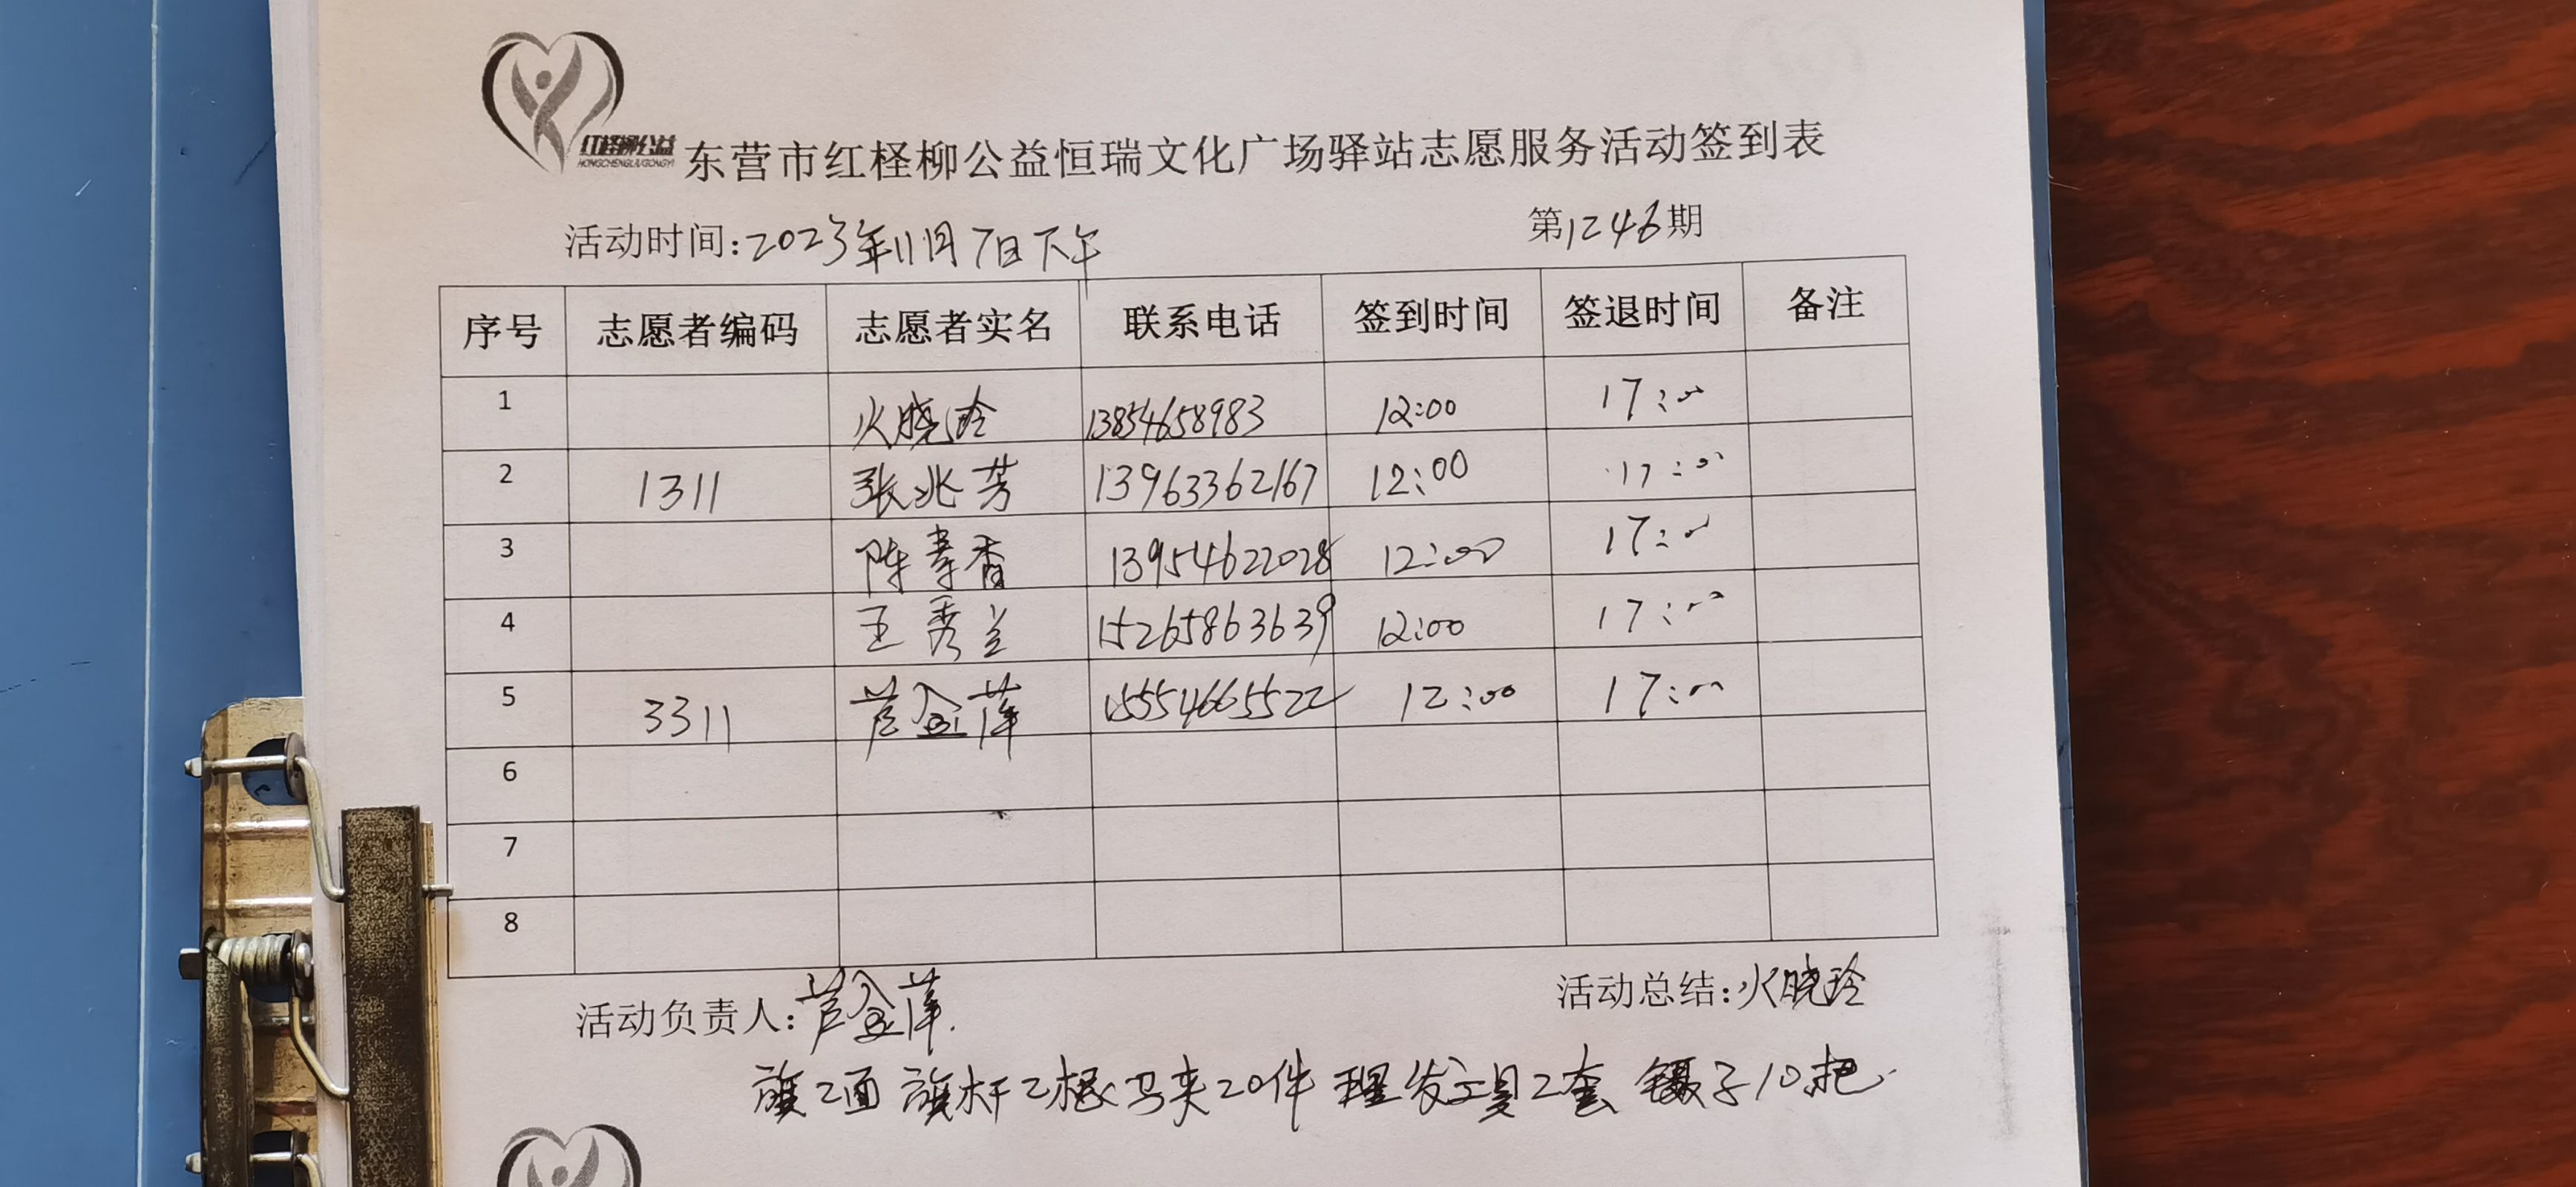 红柽柳公益
HONGCHENGLIUGONGYI
东营市红柽柳公益恒瑞文化广场驿站志愿服务活动签到表
活动时间:2023年11月7日下午 第1246期
序号 志愿者编码 志愿者实名 联系电话 签到时间 签退时间 备注
1 火晓玲 13854658983 12:00 17:00
2 1311 张兆芳 13963362167 12:00 17:00
3 陈孝香 13954622028 12:00 17:00
4 王秀兰 15265863639 12:00 17:00
5 3311 芦金萍 15554665522 12:00 17:00
6
7
8
活动负责人:芦金萍. 活动总结:火晓玲
旗2面 旗杆2根 马夹20件 理发工具2套 镊子10把.